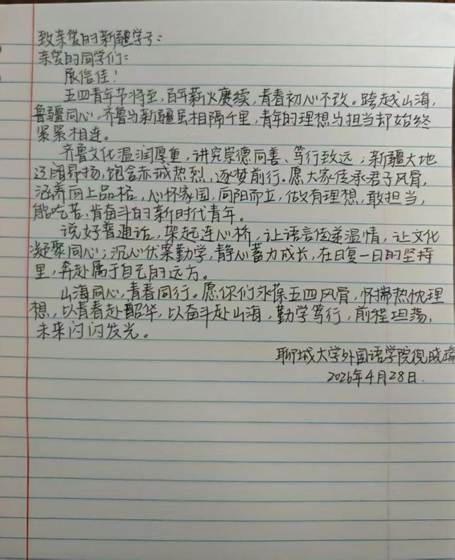 致亲爱的新疆学子：
亲爱的同学们：
展信佳！
五四青年节将至，百年薪火赓续，青春初心不改。跨越山海，
鲁疆同心，齐鲁与新疆虽相隔千里，青年的理想与担当却始终
紧紧相连。
齐鲁文化温润厚重，讲究崇德向善、笃行致远；新疆大地
辽阔昂扬，饱含赤诚热烈、逐梦前行。愿大家传承君子风骨，
涵养向上品格，心怀家国，向阳而立，做有理想，敢担当，
能吃苦，肯奋斗的新时代青年。
说好普通话，架起连心桥，让语言传递温情，让文化
凝聚同心；沉心伏案勤学，静心蓄力成长，在日复一日的坚持
里，奔赴属于自己的远方。
山海同心，青春同行。愿你们永葆五四风骨，怀揣热忱理
想，以青春赴韶华，以奋斗赴山海，勤学笃行，前程坦荡，
未来闪闪发光。
聊城大学外国语学院倪晓
2026年4月28日.